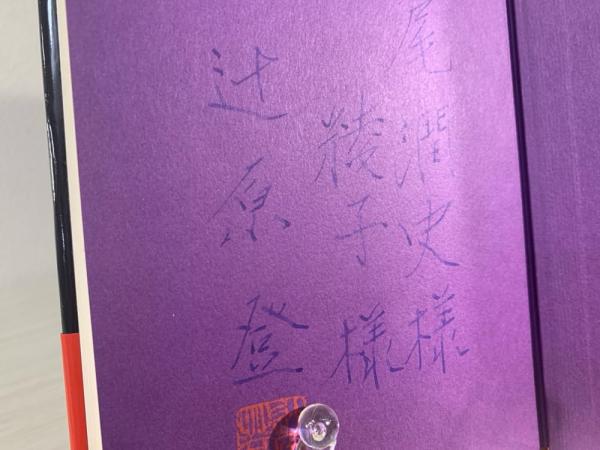 尾潤史様
綾子様
辻原登